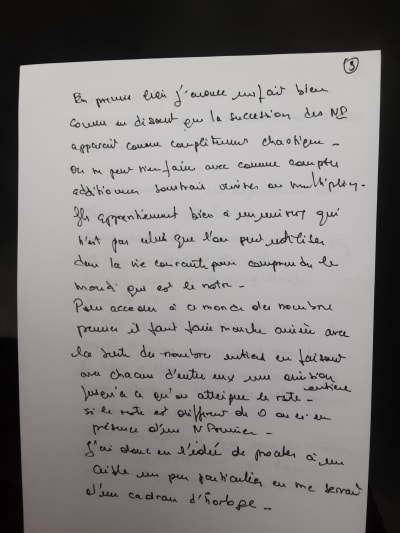 3
En premier lieu j'énonce un fait bien
connu en disant que la succession des NP
apparait comme complètement chaotique -
On ne peut rien faire avec comme compter
additionner soustraire diviser ou multiplier -
Ils appartiennent bien à un univers qui
n'est pas celui que l'on peut utiliser
dans la vie courante pour comprendre le
monde qui est le notre -
Pour acceder à ce monde des nombre
premier il faut faire marche arrière avec
la suite des nombres entiers en faisant
avec chacun d'entre eux une division
entière
jusqu'à ce qu'on atteigne le reste -
si le reste est différent de 0 on est en
présence d'un N Premier -
J'ai donc eu l'idée de procéder à un
crible un peu particulier en me servant
d'un cadran d'horloge -